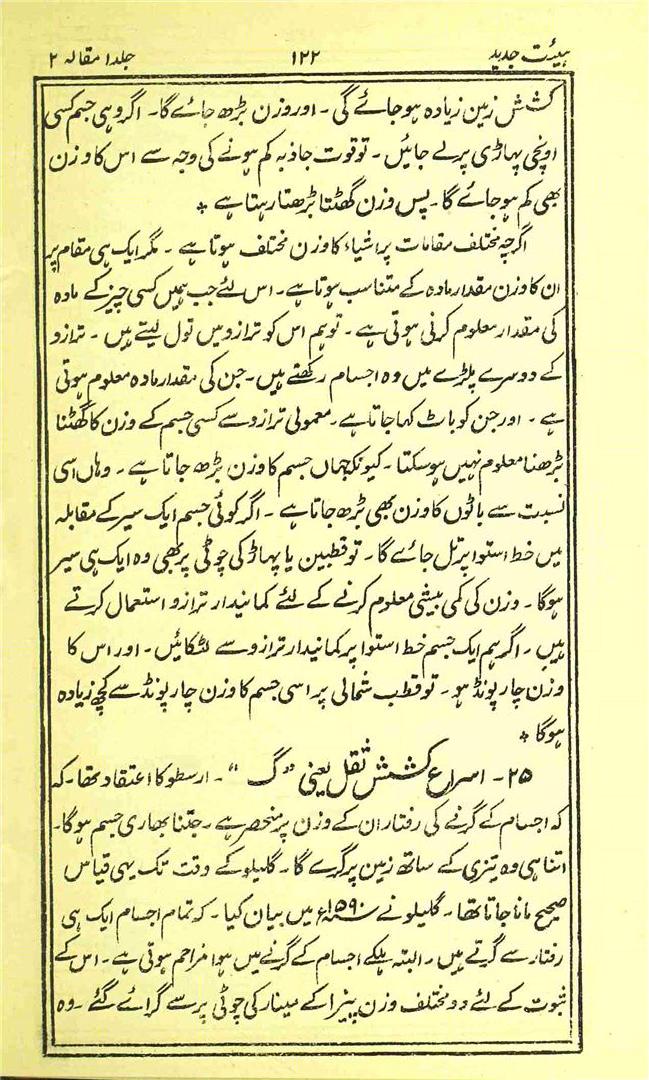 ہیئت جدید ۱۲۲ جلد ۱ مقالہ ۲
کشش زمین زیادہ ہوجائے گی ۔ اور وزن بڑھ جائے گا۔ اگر وہی جسم کسی
اونچی پہاڑی پر لے جائیں ۔ توقوت جاذبہ کم ہونے کی وجہ سے اس کا وزن
بھی کم ہوجائے گا۔ پس وزن گھٹتا بڑھتا رہتا ہے *
اگرچہ مختلف مقامات پر اشیاء کا وزن مختلف ہوتا ہے ۔ مگر ایک ہی مقام پر
ان کا وزن مقدار مادہ کے متناسب ہوتا ہے۔ اس لئے جب ہمیں کسی چیز کے مادہ
کی مقدار معلوم کرنی ہوتی ہے ۔ تو ہم اس کو ترازو میں تول لیتے ہیں ۔ ترازو
کے دوسرے پلڑے میں وہ اجسام رکھتے ہیں۔ جن کی مقدار مادہ معلوم ہوتی
ہے ۔ اور جن کو باٹ کہا جاتا ہے۔ معمولی ترازو سے کسی جسم کے وزن کا گھٹنا
بڑھنا معلوم نہیں ہوسکتا ۔ کیونکہ جہاں جسم کا وزن بڑھ جاتا ہے ۔ وہاں اسی
نسبت سے باٹوں کا وزن بھی بڑھ جاتا ہے ۔ اگر کوئی جسم ایک سیر کے مقابلہ
میں خط استوا پر تل جائے گا ۔ تو قطبین یا پہاڑ کی چوٹی پر بھی وہ ایک ہی سیر
ہوگا ۔ وزن کی کمی بیشی معلوم کرنے کے لئے کمانیدار ترازو استعمال کرتے
ہیں ۔ اگر ہم ایک جسم خط استوا پر کمانیدار ترازو سے لٹکائیں ۔ اور اس کا
وزن چار پونڈ ہو ۔ تو قطب شمالی پر اسی جسم کا وزن چار پونڈ سے کچھ زیادہ
ہوگا *
۲۵ ۔ اسراع کشش ثقل یعنی ”گ“ ۔ ارسطو کا اعتقاد تھا ۔ کہ
کہ اجسام کے گرنے کی رفتار ان کے وزن پر منحصر ہے ۔ جتنا بھاری جسم ہوگا۔
اتنا ہی وہ تیزی کے ساتھ زمین پر گرے گا ۔ گلیلو کے وقت تک یہی قیاس
صحیح مانا جاتا تھا ۔ گلیلو نے ۱۵۹۰ء میں بیان کیا ۔ کہ تمام اجسام ایک ہی
رفتار سے گرتے ہیں ۔ البتہ ہلکے اجسام کے گرنے میں ہوا مزاحم ہوتی ہے ۔ اس کے
ثبوت کے لئے دو مختلف وزن پیزا کے مینار کی چوٹی پر سے گرائے گئے ۔ وہ